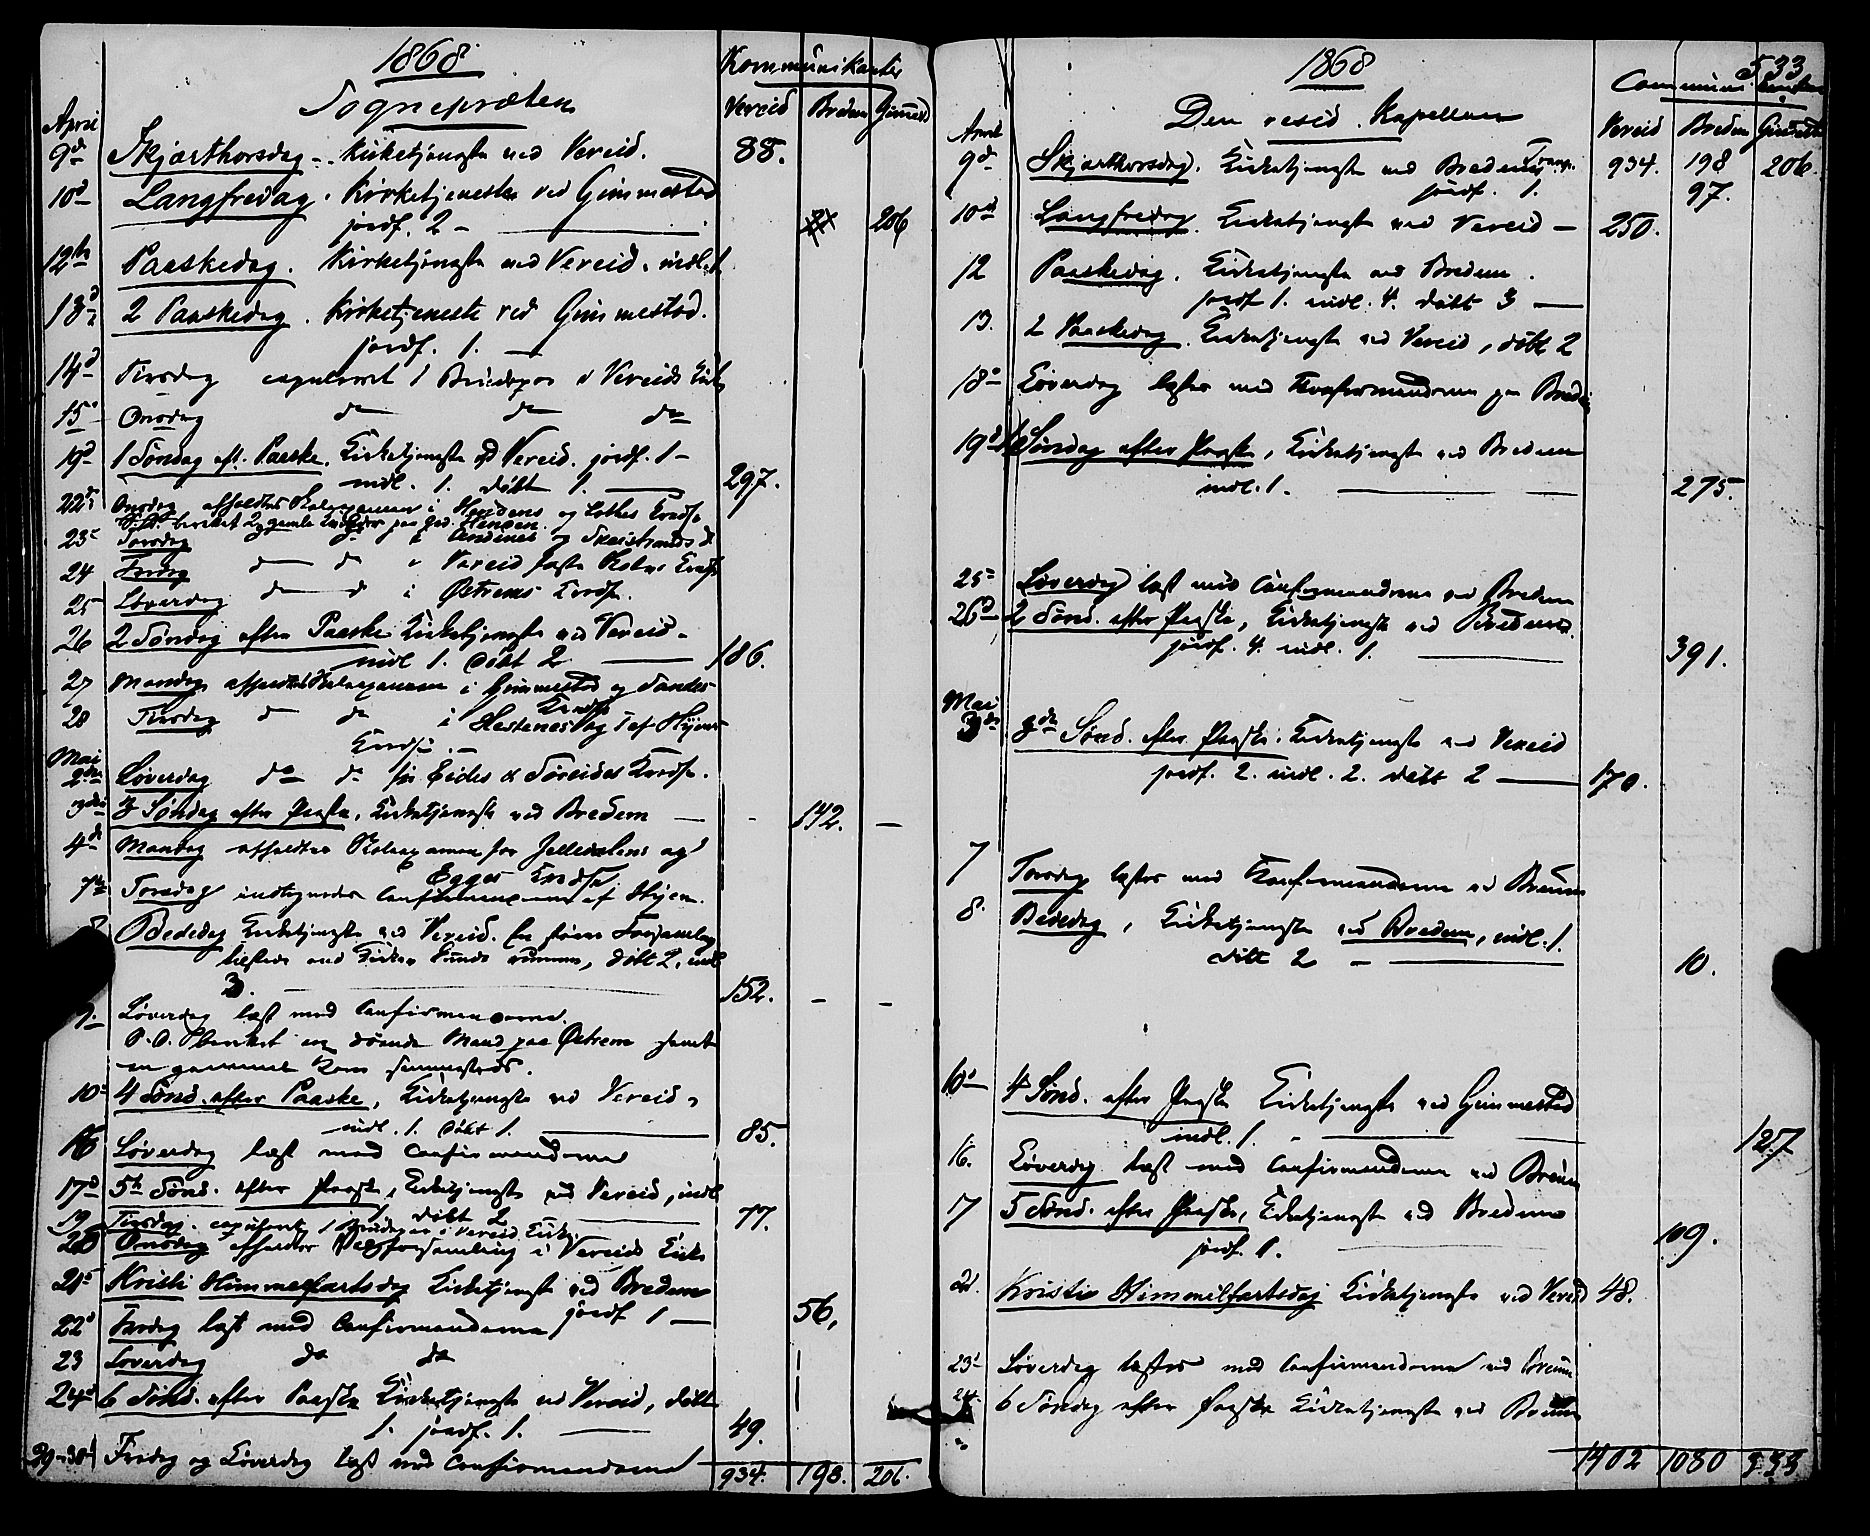 1868
Sognepræsten
Kommunikanter
Vereid Bredem Gimmestd
April
9d Skjærthorsdag. Kirketjeneste ved Vereid. 88.
10d Langfredag. Kirketjeneste ved Gimmestad
jordf. 2 — 206
12te Paaskedag. Kirketjeneste ved Vereid. indl. 1
13d 2 Paaskedag. Kirketjeneste ved Gimmestad.
jordf. 1. —
14d Tirsdag copuleret 1 Brudepar i Vereids Kirke
15d Onsdag do do do
19d 1 Søndag eft. Paaske. Kirketjeneste ved Vereid. jordf. 1 —
indl. 1. døbt 1. — 297.
22de Onsdag afholdtes Skoleexamen i Hendens og Lothes Kreds.
23d Torsdag do i Andenes og Skeistrands do
24 Fredag do do i Vereid faste Skoles Kreds
25 Løverdag do do i Østrems Kreds.
26 2 Søndag efter Paaske Kirketjeneste ved Vereid —
indl 1. døbt 2 — 186.
27 Mandag afholdtes Skoleexamen i Gimmestad og Sandes-
Kreds
28 Tirsdag do do i Hestenes og af Hyens
Kreds. —
Mai
2den Løverdag do do for Eides & Søreides Kreds.
3die 3 Søndag efter Paaske. Kirketjeneste ved Bredem — 142. —
4de Mandag afholdtes Skoleexamen for Jelledalens og
Egges Kreds
7de Torsdag indtegnedes Confirmanderne af Hyen.
8 Bededag Kirketjeneste ved Vereid. En større Forsamling
tilstede end Kirken kunde rumme, døbt 2, indl
3. — 152. — —
9. Løverdag læst med Confirmanderne.
S. D. berettet en døende Mand paa Østrem samt
en gammel Kone sammesteds.
10d 4 Sønd. efter Paaske, Kirketjeneste ved Vereid,
indl. 1. døbt 1. — 85.
16 Løverdag læst med Confirmanderne
17d 5te Sønd. efter Paaske, Kirketjeneste ved Vereid, indl
1 døbt 2 — 77.
19 Tirsdag. copuleret 1 Brudepar i Vereid Kirke
20 Onsdag afholdtes Valgforsamling i Vereids Kirke
21d Kristi Himmelfartsdag Kirketjeneste ved Bredem
jordf 1 — 56,
22d Fredag læst med Confirmanderne
23 Løverdag do do
24d 6 Sønd. efter Paaske Kirketjeneste ved Vereid, døbt
1. jordf. 1. — 49.
29-30d Fredag og Løverdag læst med Confirmanderne
934. 198. 206.
1868
533
Den resid. Kapellan
Vereid Bredem Gimmestd
April
9d Skjærthorsdag. Kirketjeneste ved Bredem Transp. 934. 198 206.
jordf. 1. 97.
10d Langfredag. Kirketjeneste ved Vereid — 250.
12 Paaskedag. Kirketjeneste ved Bredem.
jordf 1. indl. 4. døbt 3 —
13. 2 Paaskedag. Kirketjeneste ved Vereid, døbt 2
18d Løverdag læstes med Konfirmanderne paa Bredem
19d 1 Søndag efter Paaske, Kirketjeneste ved Bredem
indl. 1. — 275.
25d Løverdag læst med Confirmanderne ved Bredem
26d 2 Sønd. efter Paaske, Kirketjeneste ved Bredem.
jordf. 4. indl. 1. — 391.
Mai
3die 3die Sønd. efter Paaske. Kirketjeneste ved Vereid
jordf. 2. indl. 2. døbt 2 — 170.
7 Torsdag læstes med Konfirmanderne ved Breum
8. Bededag, Kirketjeneste ved Bredem, indl. 1.
døbt 2 — 10.
10d 4 Sønd. efter Paaske Kirketjeneste ved Gimmestad
indl. 1. — 127
16. Løverdag læst med Confirmanderne ved Breum
17 5 Sønd. efter Paaske, Kirketjeneste ved Bredem
jordf. 1. — 109.
21. Kristi Himmelfartsdag Kirketjeneste ved Vereid 48.
23d Løverdag læstes med Confirmanderne ved Breum
24. 6 Søndag efter Paaske Kirketjeneste ved Breum
1402 1080 333